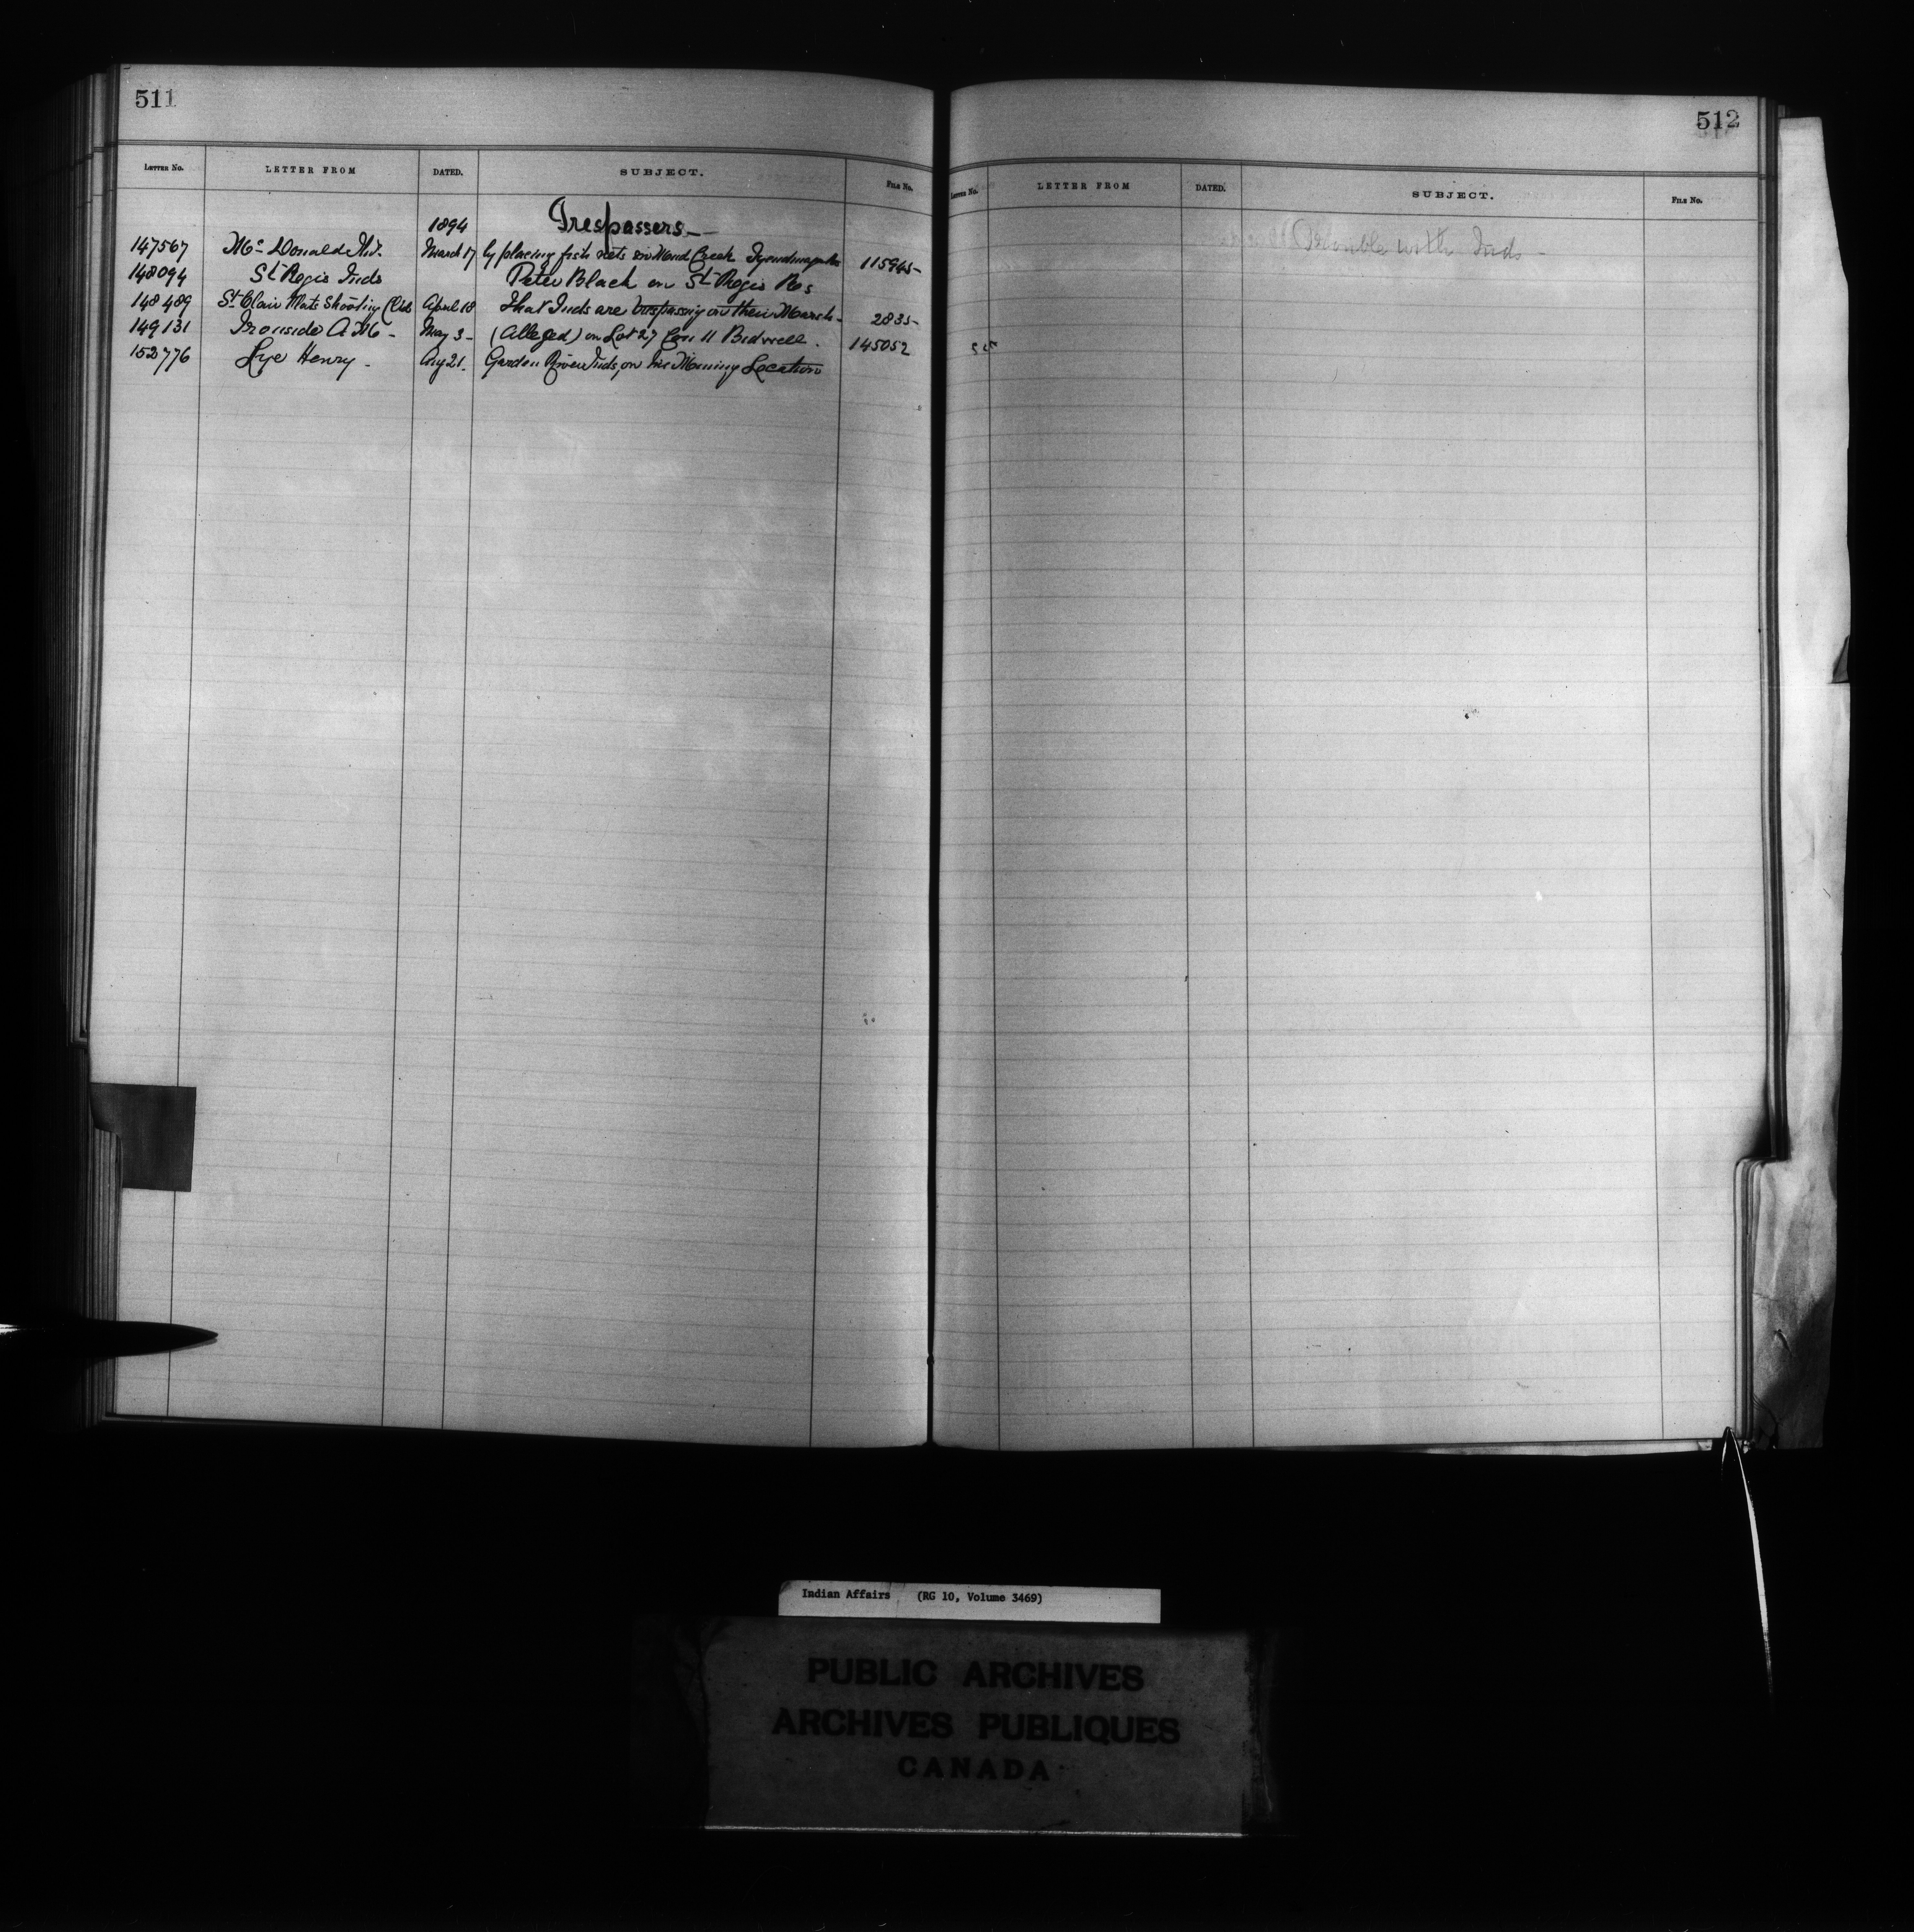 511
LETTER No. LETTER FROM DATED. SUBJECT. FILE No.
1894 Trespassers
147567 McDonald March 17 by placing fish nets in Mud Creek 115945
148094 St Regis Inds Peter Black on St Regis Res
148489 St Clair Flats Shooting Club April 18 That Inds are trespassing on their Marsh 2835
149131 Ironside A. M. May 3 (Alleged) on Lot 27 Con 11 Bidwell. 145052
152776 Lye Henry Aug 21. Garden River Inds, on his Mining Location
512
LETTER No. LETTER FROM DATED. SUBJECT. FILE No.
Trouble with Inds
Indian Affairs (RG 10, Volume 3469)
PUBLIC ARCHIVES
ARCHIVES PUBLIQUES
CANADA